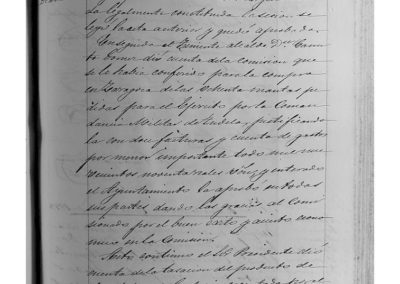 da legalmente constituida la sesion se
leyó la acta anterior y quedó aprobada.
Enseguida el Teniente alcalde Dn. Cami
lo Gomez dió cuenta de la comision que
se le habia conferido para la compra
en Zaragoza de las ochenta mantas pe
didas para el Ejercito por la Coman
dancia Militar de Tudela, justifican
la con doce facturas y cuenta de gastos
por menor importante todo mil nue
vecientos noventa reales vellon, y enterado
el Ayuntamiento la aprobó en todas
sus partes, dando las gracias al Comi
sionado por el buen exito y acierto econo
mico en la Comision.
Acto continuo el Sr. Presidente dió
cuenta de la tasacion del producto de